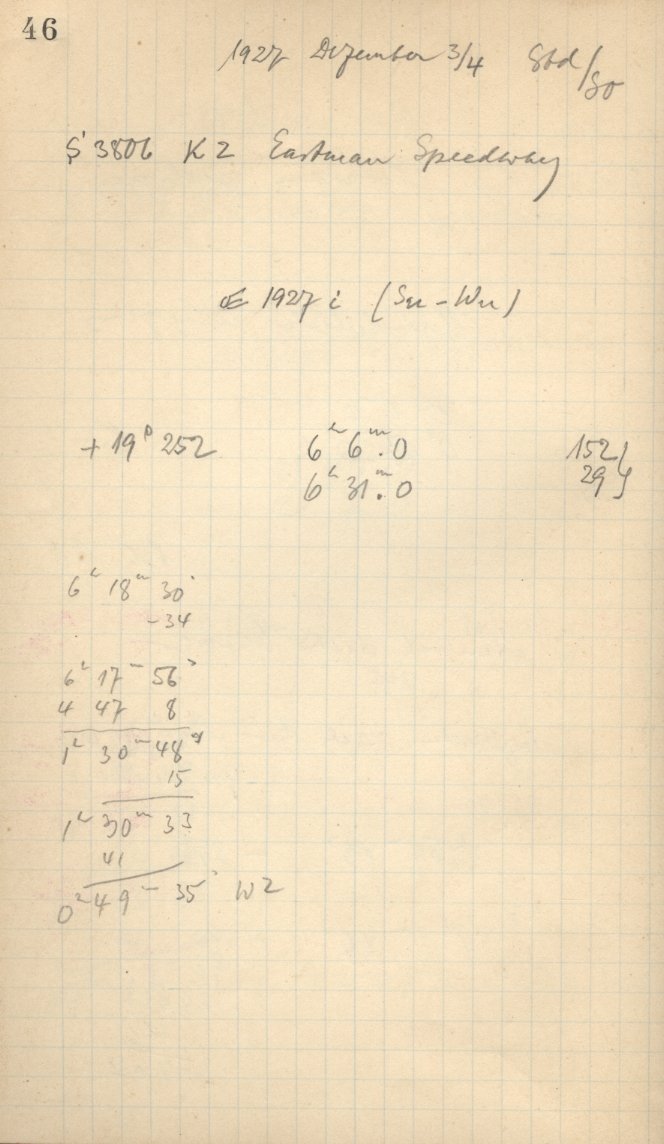 46
1927 Dezember 3/4 Sbd/So
S 3806 K2 Eastman Speedway
1927 i (Su-Wu)
+ 19° 252 6h 6m.0 152
6h 31m.0 29
6h 18m 30s
-34
6h 17m 56s
4 47 8
1h 30m 48s
15
1h 30m 33
41
0h 49m 35s WZ